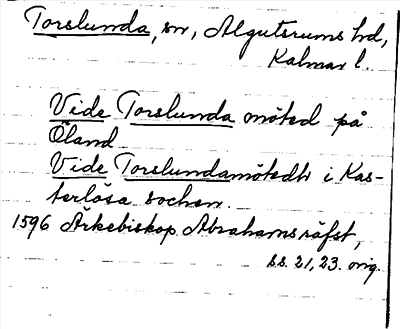 Torslunda, sn, Algutsrums hd,
Kalmar l.
Vide Torslunda möted på
Öland
Vide Torslundamötedh i Kas-
terlösa sochen.
1596 Ärkebiskop Abrahams räfst,
ss. 21, 23. orig.